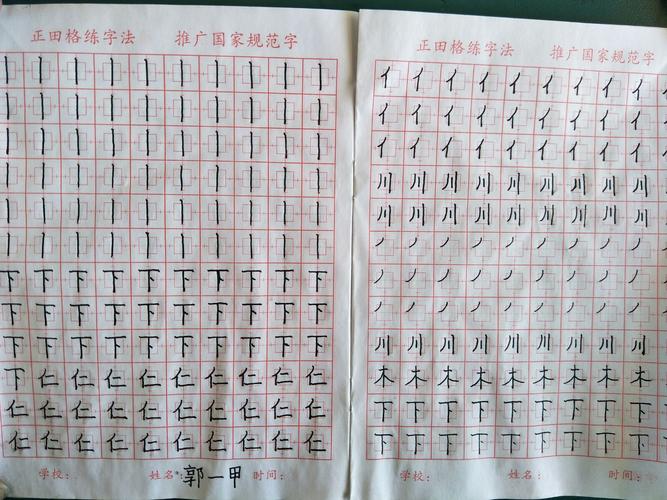 正田格练字法 推广国家规范字
丨 丨 丨 丨 丨 丨 丨 丨 丨 丨
丨 丨 丨 丨 丨 丨 丨 丨 丨 丨
丨 丨 丨 丨 丨 丨 丨 丨 丨 丨
丨 丨 丨 丨 丨 丨 丨 丨 丨 丨
丨 丨 丨 丨 丨 丨 丨 丨 丨 丨
丨 丨 丨 丨 丨 丨 丨 丨 丨 丨
下 下 下 下 下 下 下 下 下 下
下 下 下 下 下 下 下 下 下 下
下 下 下 下 下 下 下 下 下 下
下 仁 仁 仁 仁 仁 仁 仁 仁 仁
仁 仁 仁 仁 仁 仁 仁 仁 仁 仁
仁 仁 仁 仁 仁 仁 仁 仁 仁 仁
学校： 姓名：郭一甲 时间：
正田格练字法 推广国家规范字
亻 亻 亻 亻 亻 亻 亻 亻 亻
亻 亻 亻 亻 亻 亻 亻 亻 亻
亻 亻 亻 亻 亻 亻 亻 亻 亻
川 川 川 川 川 川 川 川 川
川 川 川 川 川 川 川 川 川
丿 丿 丿 丿 丿 丿 丿 丿 丿
丿 丿 丿 丿 丿 丿 丿 丿 丿
丿 丿 丿 丿 丿 丿 丿 丿 丿
川 川 川 川 川 川 川 川 川
木 木 木 木 木 木 木 木 木
下 下 下 下 下 下 下 下 下
下 下 下 下 下 下 下 下 下
学校： 姓名： 时间：